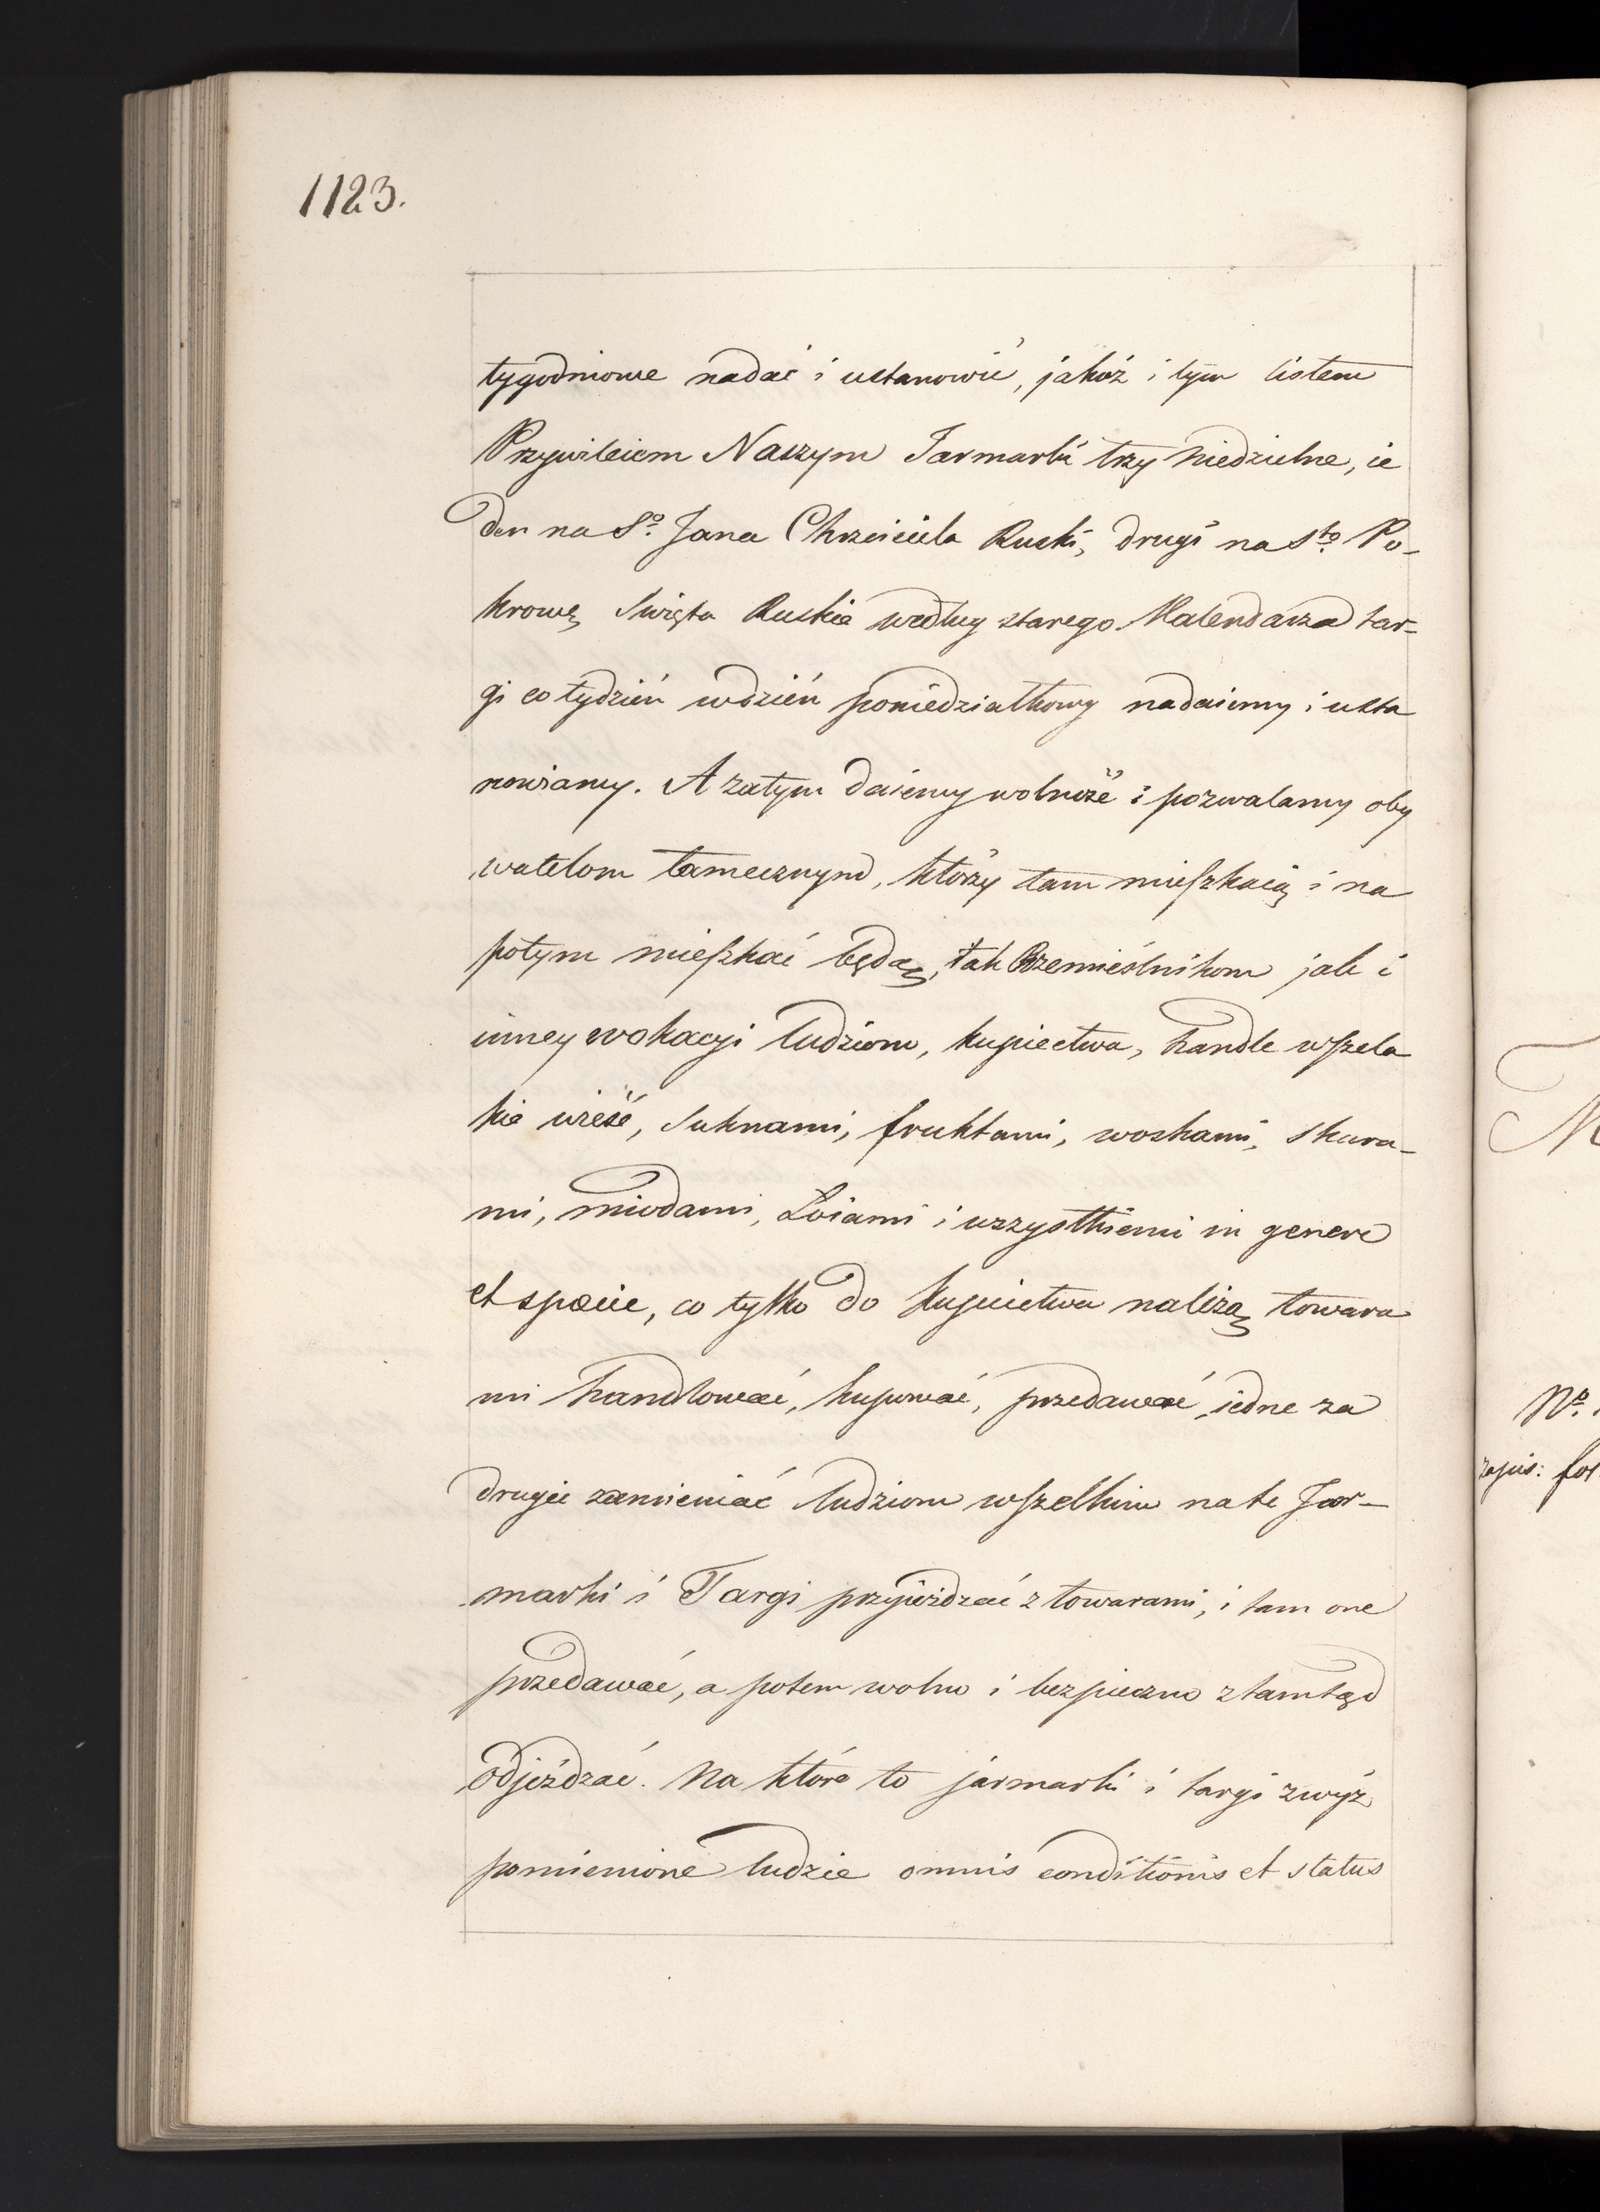 1123.
tygodniowe nadać i ustanowić, jakoż i tym listem
Przywileiem Naszym Jarmarki trzy niedzielne, ie
den na So. Jana Chrzciciela Ruski, drugi na Sto. Po-
krowę Święta Ruskie według starego Kalendarza tar-
gi co tydzień w dzień poniedziałkowy nadaiemy i usta
nowiamy. A zatym daiemy wolność i pozwalamy oby
watelom tamecznym, którzy tam mieszkaią i na
potym mieszkać będą, tak Rzemieślnikom jak i
inney wokacyi ludziom, kupiectwa, handle wszela
kie wieść, suknami, fruktami, woskami, skura-
mi, miodami, Łoiami i wszystkiemi in genere
et specie, co tylko do kupiectwa należą towara
mi handlować, kupować, przedawać, iedne za
drugie zamieniać ludziom wszelkim na te Jar-
marki i Targi przyjeżdzać z towarami, i tam one
przedawać, a potem wolno i bezpieczno ztamtąd
odjeżdzać. Na które to jarmarki i targi zwyż
pomienione ludzie omnis conditionis et status
M
No.
zapis: fol